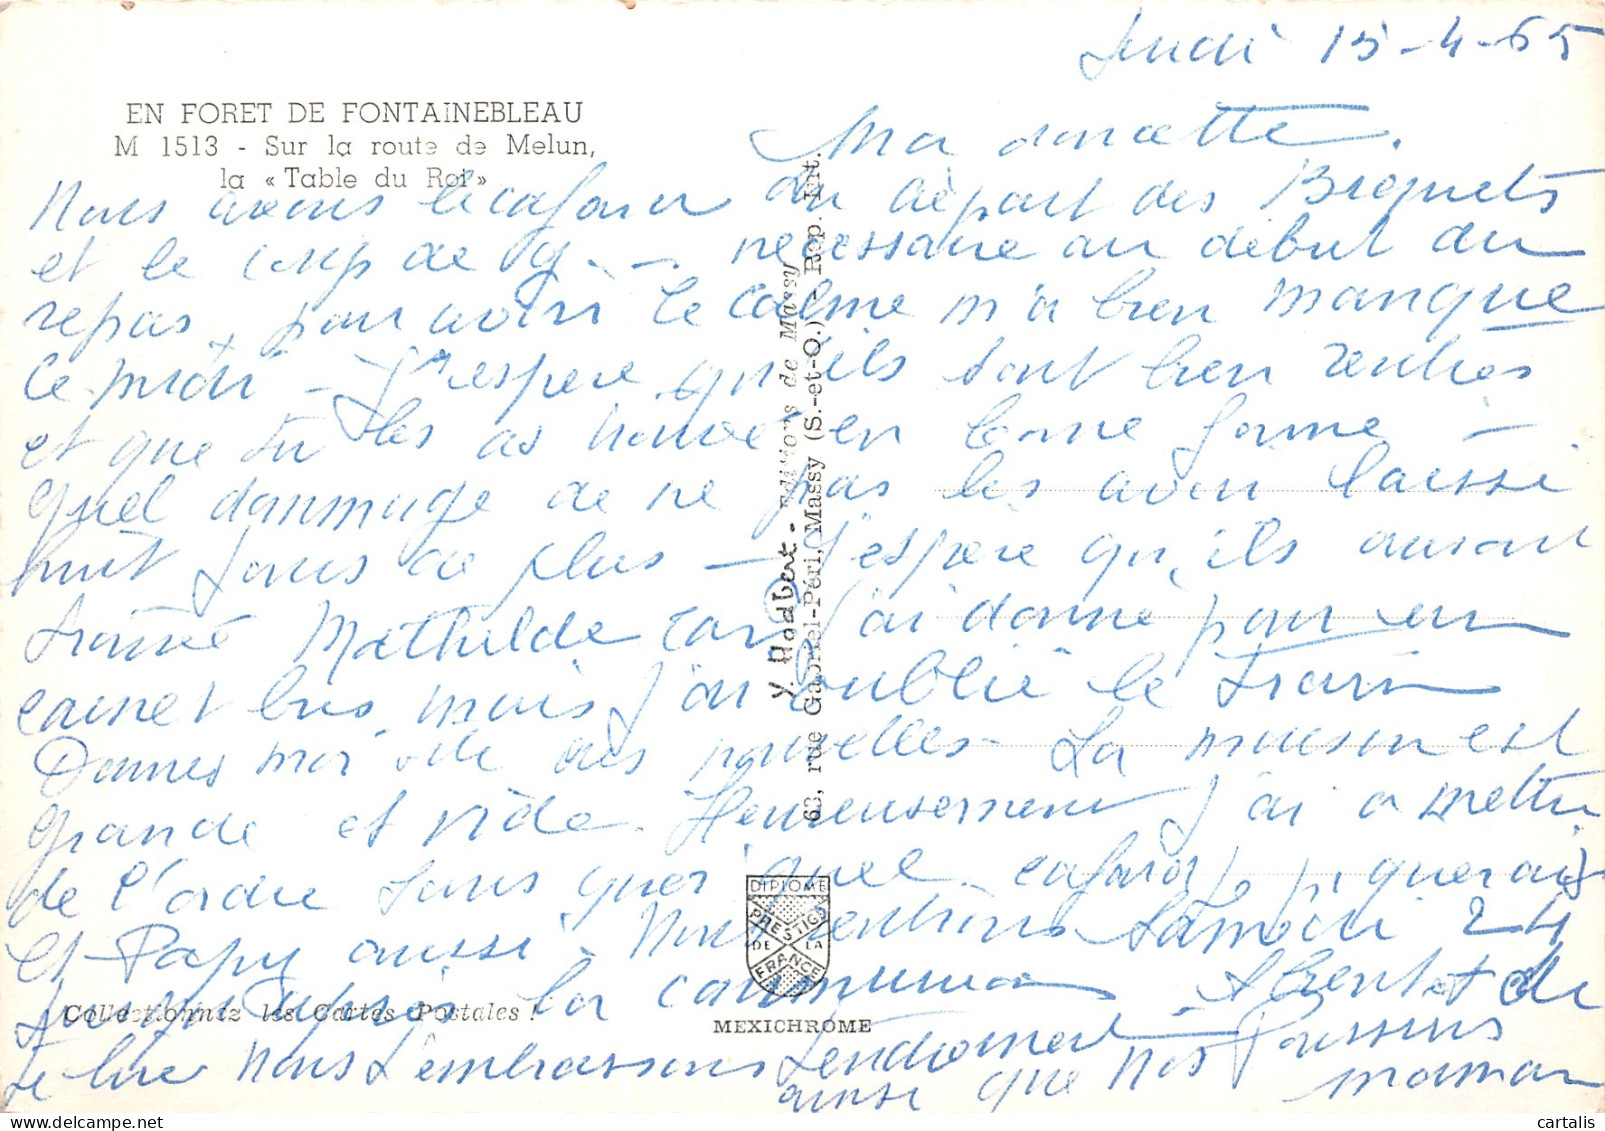 Jeudi 15-4-65
EN FORET DE FONTAINEBLEAU
M 1513 - Sur la route de Melun,
la « Table du Roi »
Ma doucette.
Nous avons le cafard du départ des Biquets
et le coup de g. - nécessaire au début du
repas, pour avoir le calme m'a bien manqué
ce midi - J'espère qu'ils sont bien rentrés
et que tu les as trouvé en bonne forme -
quel dommage de ne pas les avoir laissé
huit jours de plus - j'espère qu'ils auront
trainé Mathilde car j'ai donné pour un
carnet bus mais j'ai oublié le train
Donnes moi vite des nouvelles - La maison est
grande et vide. Heureusement j'ai a mettre
de l'ordre sans quoi quel cafard je piquerais
et Papy aussi - Nous rentrons Samedi 24
juste après la communion
te lire Nous t'embrassons tendrement
ainsi que nos Poussins
maman
Y. Hodbert - Editions de Massy
63, rue Gabriel-Péri, Massy (S.-et-O.) - Rep. Int.
DIPLOME
PRESTIGE
DE LA
FRANCE
Collectionnez les Cartes Postales !
MEXICHROME
cartalis